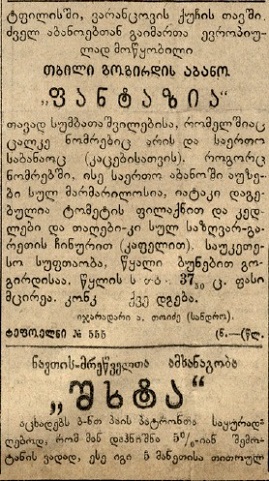 ტფილისში, ვარანცოვის ქუჩის თავში,
ძველ აბანოებთან გაიმართა ევროპიუ-
ლად მოწყობილი
თბილი გოგირდის აბანო
„ფანტაზია“
თავად სუმბათაშვილებისა, რომელშიაც
ცალკე ნომრებიც არის და საერთო
საბანაოც (კაცებისათვის), როგორც
ნომრებში, ისე საერთო აბანოში აუზე-
ბი სულ მარმარილოსია, იატაკი დაგე-
ბულია ტომეტის ფილაქნით და კედ-
ლები და თაღები-კი სულ საზღვარ-გა-
რეთის ჩინურით (კაფელით). საუკეთე-
სო სუფთაობა, წყალი ბუნებით გო-
გირდისაა. წყლის 37 ც. ფასი
მცირეა. დგება.
იჯარადარი ა. თოიძე (სანდრო).
ტეფოელნი № 555 (ნ.—წლ.
ნავთის-მრეწველთა ამხანაგობა
„შხტა“
აცხადებს ბ-ნთ პაის პატრონთა საყურად-
ღებოდ, რომ მან დანიშნა 5%-იან შემო-
ტანის ვადად, ესე იგი 5 მანეთისა თითოულ